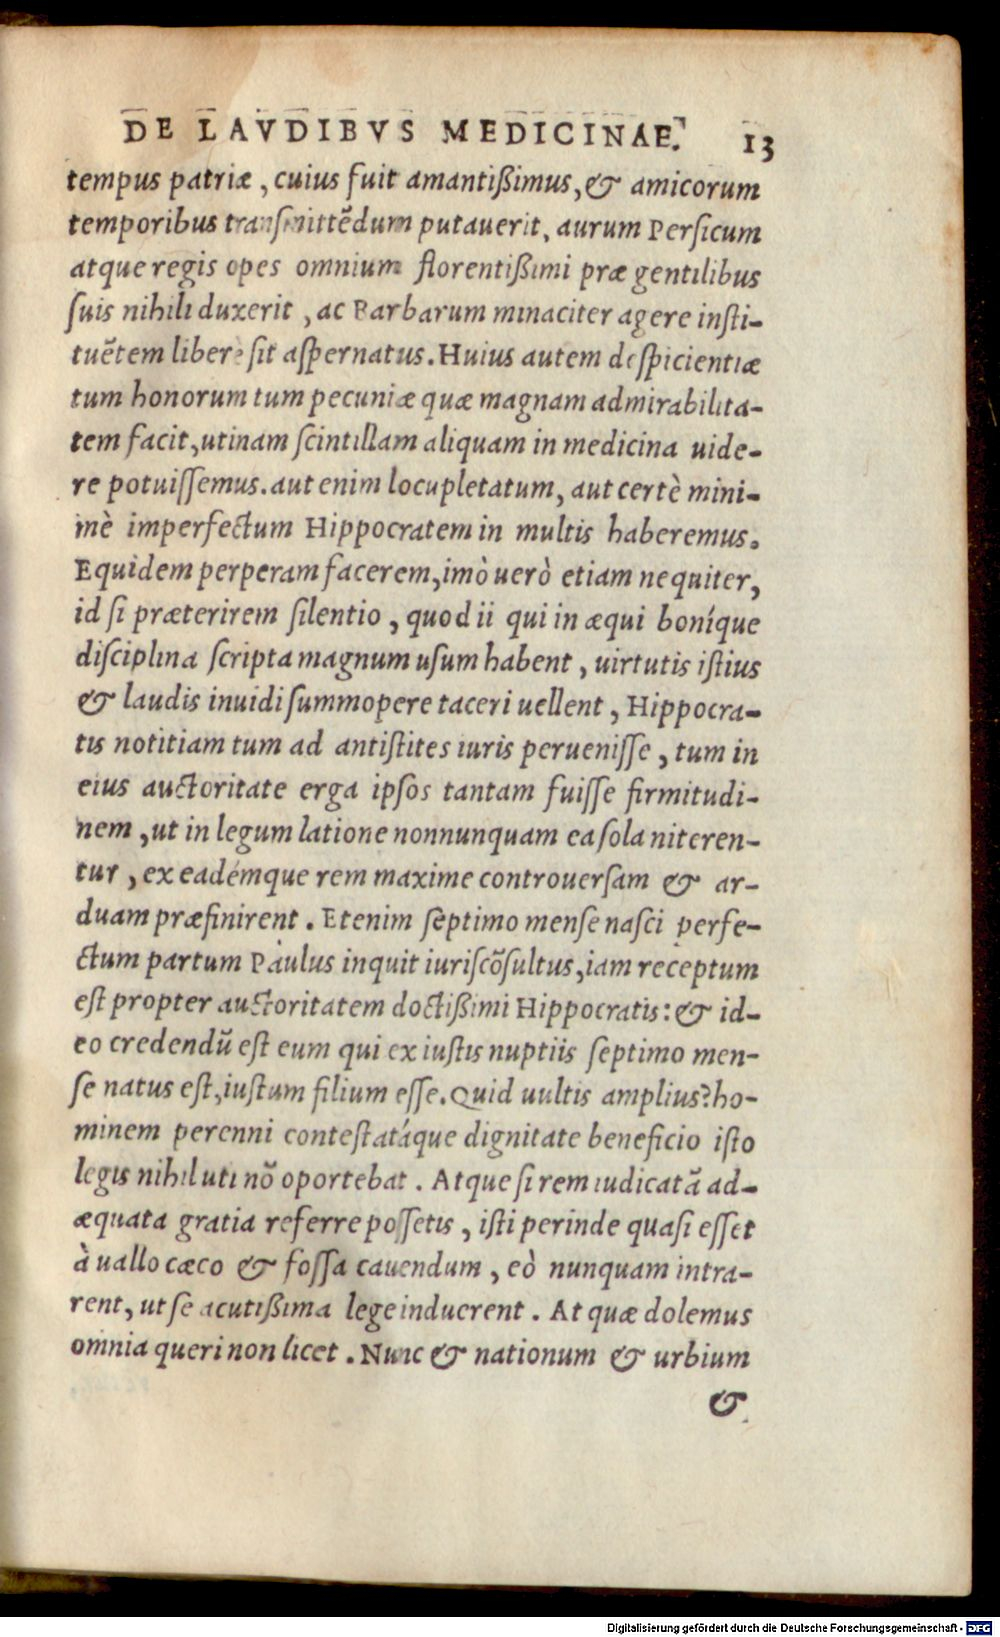 DE LAVDIBVS MEDICINAE. 13
tempus patriæ, cuius fuit amantißimus, & amicorum
temporibus transmittēdum putauerit, aurum Persicum
atque regis opes omnium florentißimi præ gentilibus
suis nihili duxerit, ac Barbarum minaciter agere insti-
tuētem liberè sit aspernatus. Huius autem despicientiæ
tum honorum tum pecuniæ quæ magnam admirabilita-
tem facit, utinam scintillam aliquam in medicina uide-
re potuissemus. aut enim locupletatum, aut certè mini-
mè imperfectum Hippocratem in multis haberemus.
Equidem perperam facerem, imò uerò etiam nequiter,
id si præterirem silentio, quod ii qui in æqui boníque
disciplina scripta magnum usum habent, uirtutis istius
& laudis inuidi summopere taceri uellent, Hippocra-
tis notitiam tum ad antistites iuris peruenisse, tum in
eius auctoritate erga ipsos tantam fuisse firmitudi-
nem, ut in legum latione nonnunquam ea sola niteren-
tur, ex eadémque rem maxime controuersam & ar-
duam præfinirent. Etenim septimo mense nasci perfe-
ctum partum Paulus inquit iuriscōsultus, iam receptum
est propter auctoritatem doctißimi Hippocratis: & id-
eo credendū est eum qui ex iustis nuptiis septimo men-
se natus est, iustum filium esse. Quid uultis amplius? ho-
minem perenni contestatáque dignitate beneficio isto
legis nihil uti nō oportebat. Atque si rem iudicatā ad-
æquata gratia referre possetis, isti perinde quasi esset
à uallo cæco & fossa cauendum, eò nunquam intra-
rent, ut se acutißima lege induerent. At quæ dolemus
omnia queri non licet. Nunc & nationum & urbium
&
Digitalisierung gefördert durch die Deutsche Forschungsgemeinschaft - DFG